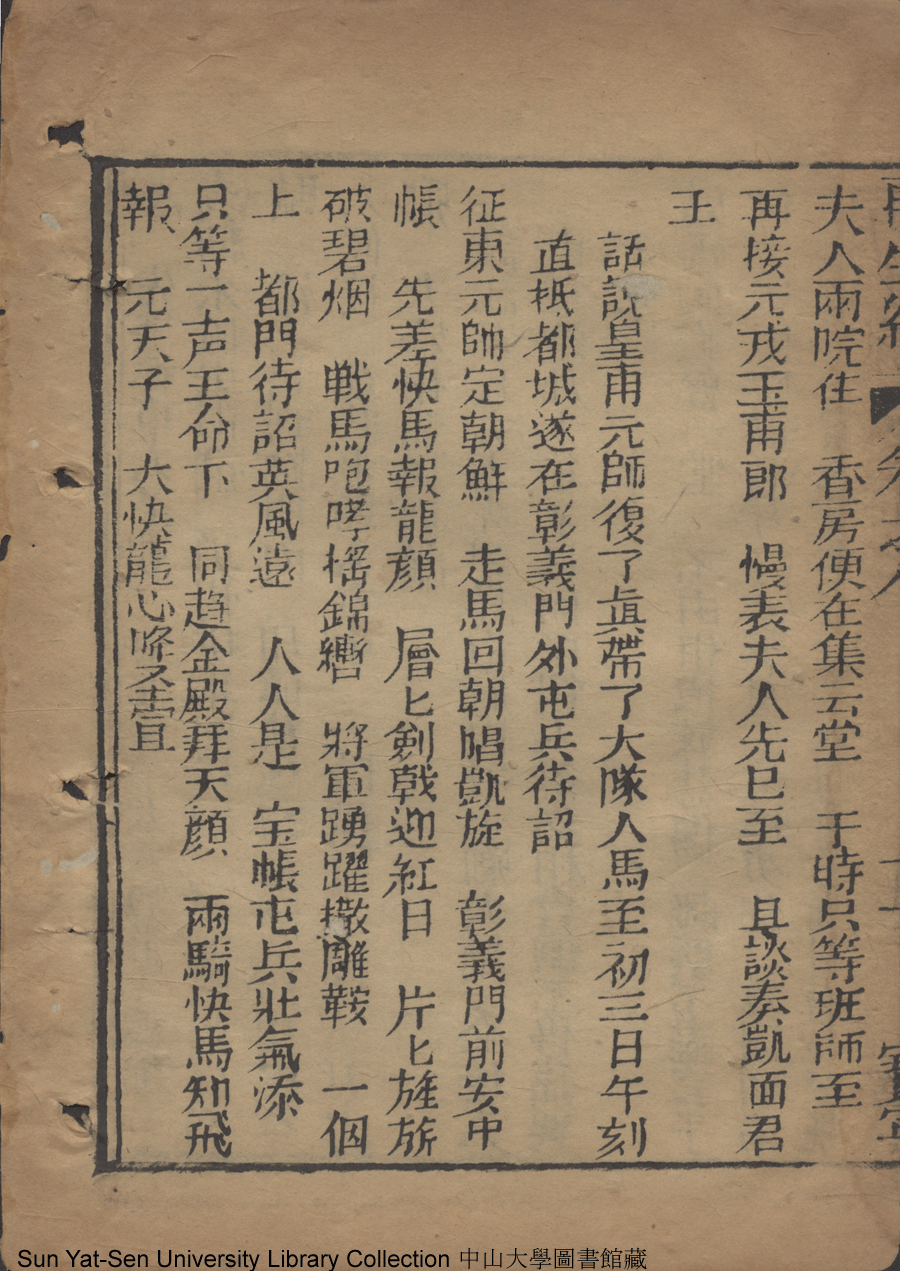 再生緣
夫人兩院住　香房便在集云堂　于時只等班師至
再接元戎玉甫郎　慢表夫人先已至　且談奏凱面君
王
話說皇甫元師復了眞帶了大隊人馬至初三日午刻
直抵都城遂在彰義門外屯兵待詔
征東元帥定朝鮮　走馬回朝唱凱旋　彰義門前安中
帳　先差快馬報龍顔　層匕剣戟迎紅日　片匕旌旂
破碧烟　戦馬咆哮揺錦轡　將軍踴躍撒雕鞍　一個
上　都門待詔英風遠　人人是　宝帳屯兵壯氣添
只等一声王命下　同趋金殿拜天顔　兩騎快馬知飛
報　元天子　大快龍心降玉宣
Sun Yat-Sen University Library Collection 中山大學圖書館藏